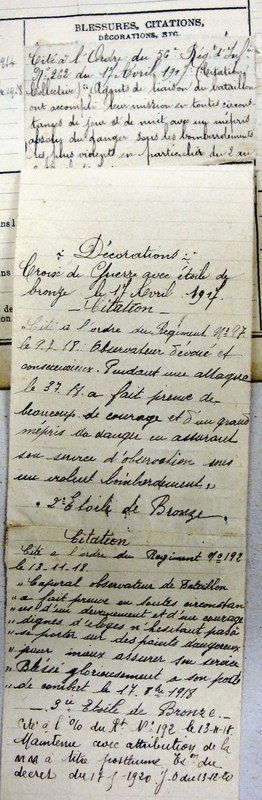 BLESSURES, CITATIONS,
DÉCORATIONS, ETC.
Cité à l'Ordre du 56e Rég. d'Inf.
No 262 du 17 Avril 1917 (Citation
Collective) "Agents de liaison du bataillon
ont accompli leur mission en toutes circons
tances de jour et de nuit, avec un mépris
absolu du danger sous les bombardements
les plus violents en particulier du 2 au
Décorations
Croix de Guerre avec étoile de
bronze le 17 Avril 1917.
Citation
"Cité à l'ordre du Régiment No 97
le 9.7.18. Observateur dévoué et
consciencieux. Pendant une attaque
le 3.7.18 a fait preuve de
beaucoup de courage et d'un grand
mépris du danger en assurant
son service d'observation sous
un violent bombardement."
2e Etoile de Bronze.
Citation
Cité à l'ordre du Régiment No 192
le 13.11.18
"Caporal observateur de Bataillon
"a fait preuve en toutes circonstan
"ces d'un dévouement et d'un courage
"dignes d'éloges n'hésitant pas à
"se porter sur des points dangereux
"pour mieux assurer son service
"Blessé glorieusement à son poste
"de combat le 17. 8bre 1918
3e Etoile de Bronze.
Cité à l'O/ du Rt No 192 le 13-11-18
Maintenue avec attribution de la
MM à titre posthume
décret du 17 1920 J.O du 13-12-20